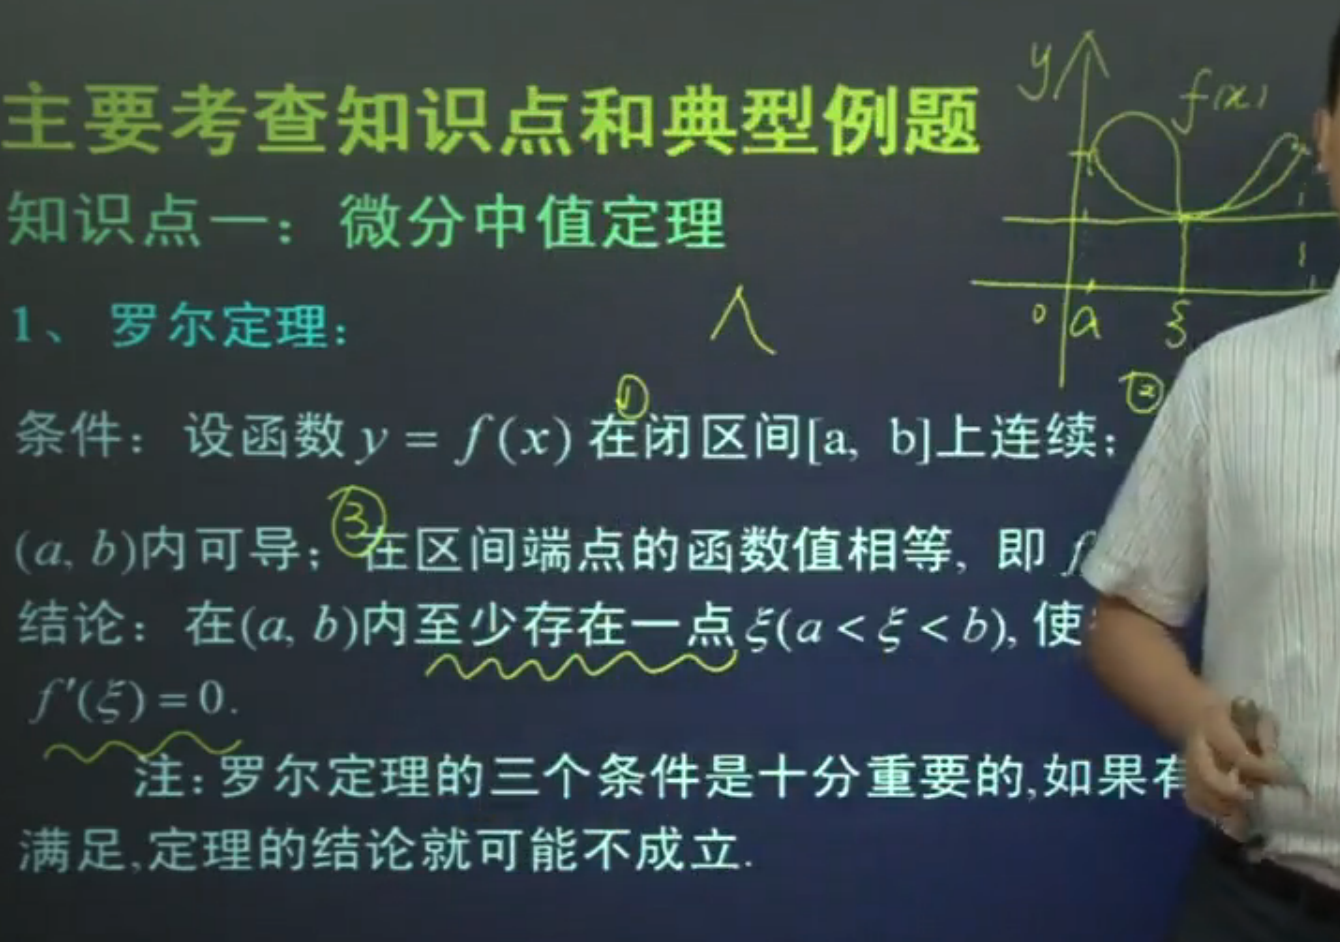 主要考查知识点和典型例题
知识点一：微分中值定理
y
f(x)
0 a ξ
1、罗尔定理：
① ②
条件：设函数 y = f(x) 在闭区间[a, b]上连续；
③
(a, b)内可导；在区间端点的函数值相等, 即 f
结论：在(a, b)内至少存在一点 ξ(a < ξ < b), 使
f′(ξ) = 0.
注：罗尔定理的三个条件是十分重要的,如果有
满足,定理的结论就可能不成立.